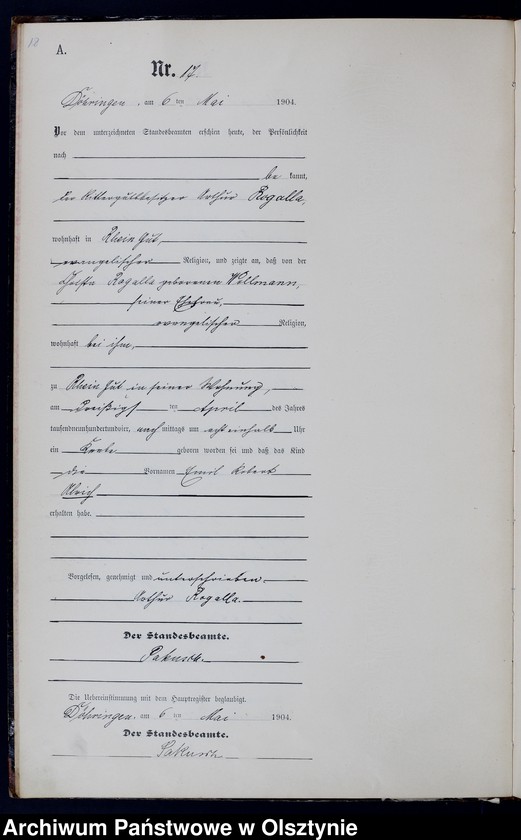 18
A.
Nr. 17.
Döhringen, am 6 ten Mai 1904.
Vor dem unterzeichneten Standesbeamten erschien heute, der Persönlichkeit
nach
be kannt,
der Rittergutsbesitzer Arthur Rogalla,
wohnhaft in Rhein Gut,
evangelischer Religion, und zeigte an, daß von der
Rogalla geborenen Wollmann,
seiner Ehefrau,
evangelischer Religion,
wohnhaft bei ihm,
zu Rhein Gut in seiner Wohnung,
am dreißigsten April des Jahres
tausendneunhundertundvier, nach mittags um acht einhalb Uhr
ein Knabe geboren worden sei und daß das Kind
die Vornamen Emil Robert
Ulrich
erhalten habe.
Vorgelesen, genehmigt und unterschrieben.
Arthur Rogalla.
Der Standesbeamte.
Die Uebereinstimmung mit dem Hauptregister beglaubigt.
Döhringen, am 6 ten Mai 1904.
Der Standesbeamte.
Archiwum Państwowe w Olsztynie